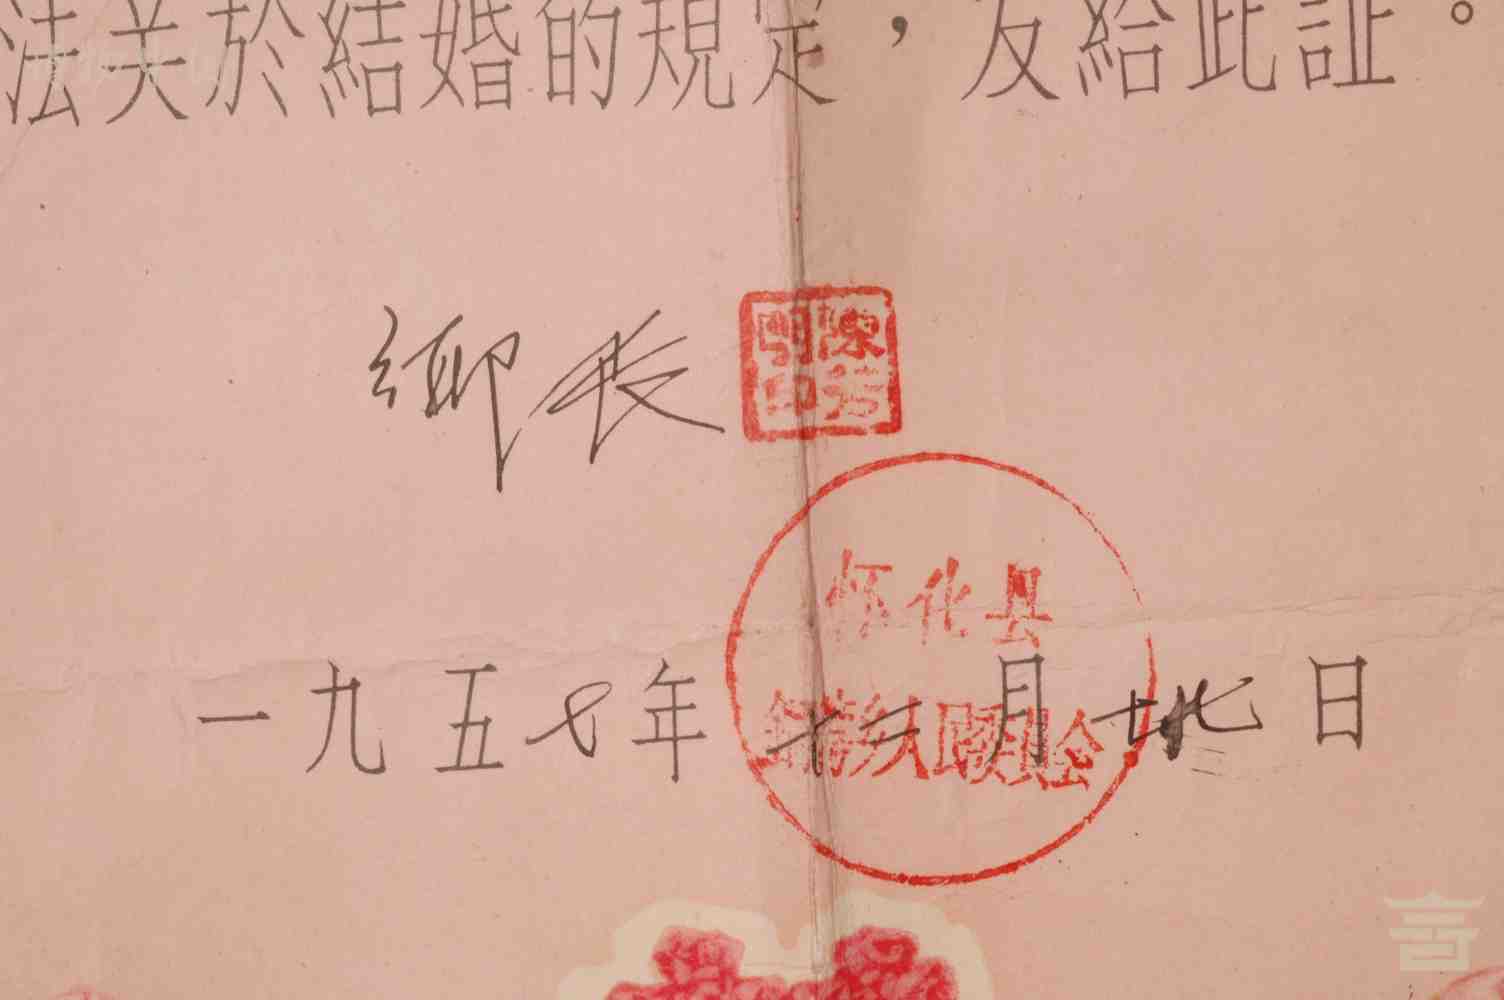 法关於結婚的規定，发給此証。
鄉長
陳芳明印
怀化县
乡人民委員会
一九五七年十二月廿九日